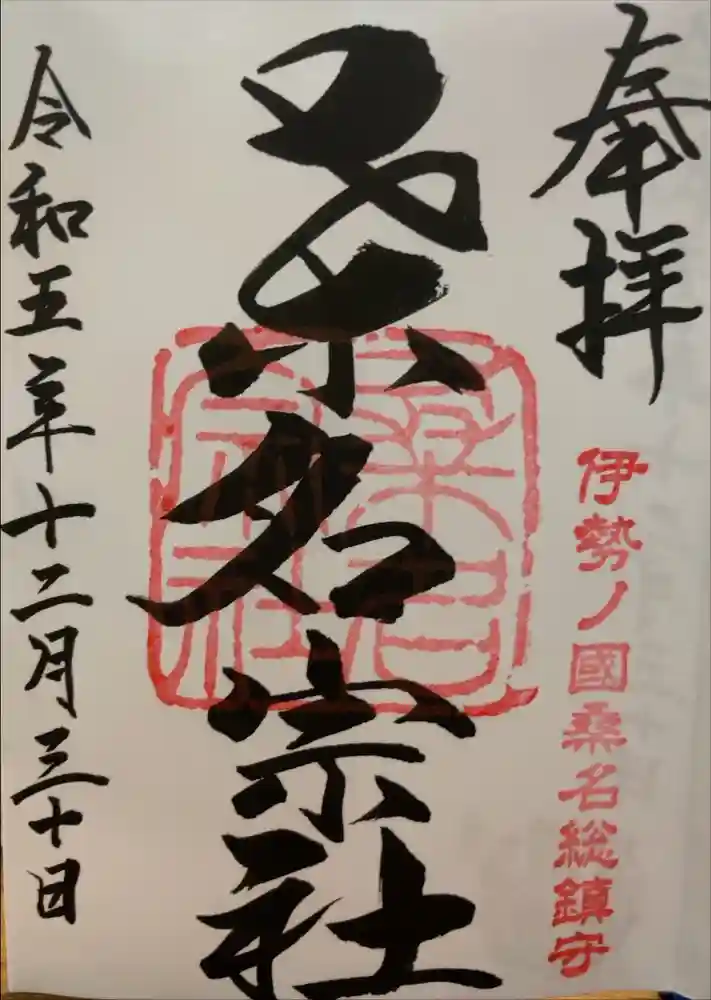 奉拝
伊勢ノ國桑名総鎮守
桑名宗社
桑名宗社
令和五年十二月三十日